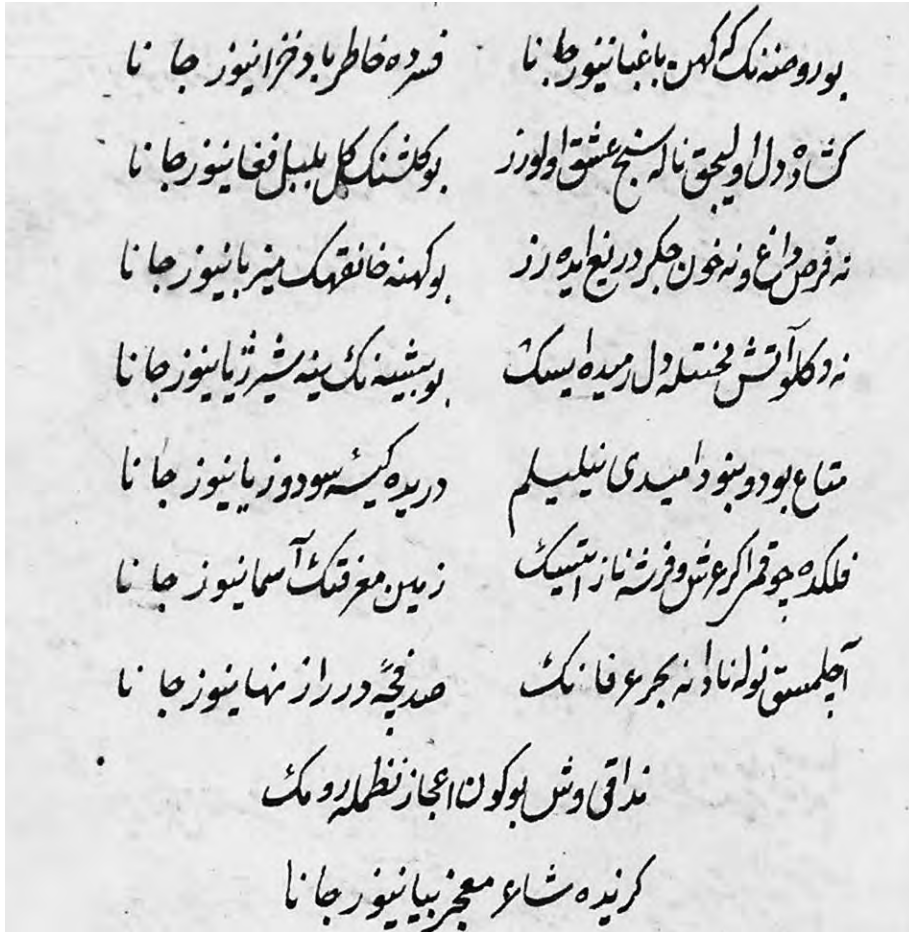 بو روضه‌نك كه كهن باغبانیوز جانا    فسرده خاطر باد خزانیوز جانا
كشاده دل اولیجق ناله سنج عشق اولورز    بو كلشنك كل بلبل فغانیوز جانا
نه قرص داغ و نه خون جكر دریغ ایده رز    بو كهنه خانقهك میزبانیوز جانا
نه دكلو آتش محنتله دل رمیده ایسك    بو بیشه‌نك ینه شیر ژیانیوز جانا
متاع بود و نبود امیدی نیلیلم    دریده كیسهٔ سود و زیانیوز جانا
فلكده چوقمی اكر عرش و فرشه ناز ایتسك    زمین معرفتك آسمانیوز جانا
آچلمسق نوله نادانه بحر عرفانك    صدفچهٔ در راز نهانیوز جانا
مذاقی وش بو كون اعجاز نظمله رومك
كزیده شاعر معجز بیانیوز جانا